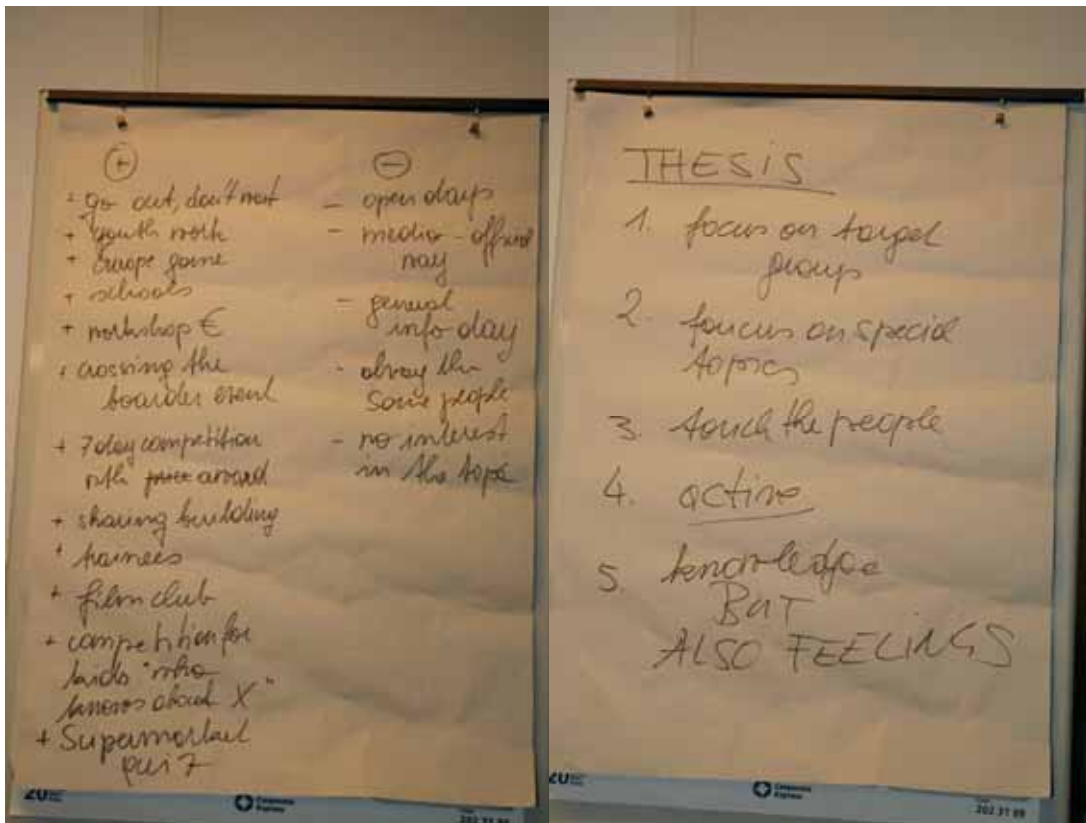 +
+ go out, don't wait
+ youth work
+ europe game
+ schools
+ workshop €
+ crossing the
boarder event
+ 7 day competition
with price award
+ sharing building
+ trainees
+ film club
+ competition for
kids "who
knows about X"
+ Supermarket
quiz
-
- open days
- media - official
way
- general
info day
- alway the
same people
- no interest
in the topic
Corporate
Express
THESIS
1. focus on target
group
2. foucus on special
topics
3. touch the people
4. active
5. knowledge
BUT
ALSO FEELINGS
Corporate
Express
202 31 99